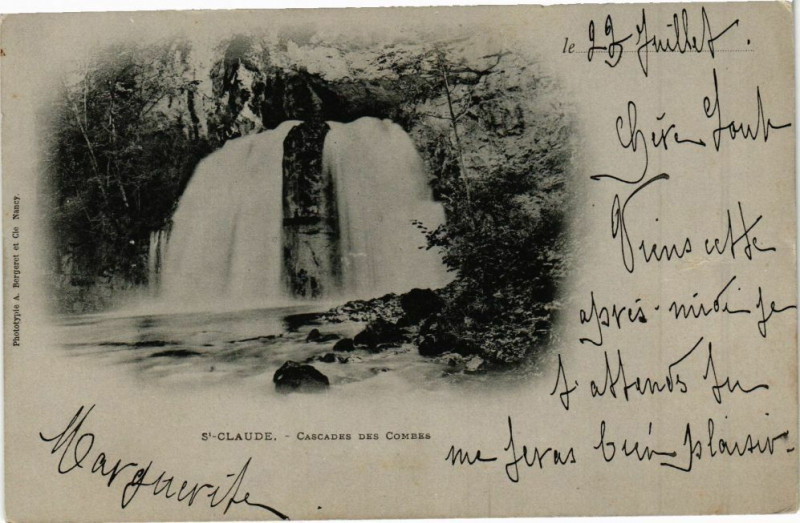 le 22 Juillet.
Chère
Viens cette
après-midi je
t'attends tu
me feras bien plaisir.
Marguerite
St-CLAUDE. - CASCADES DES COMBES
Phototypie A. Bergeret et Cie Nancy.